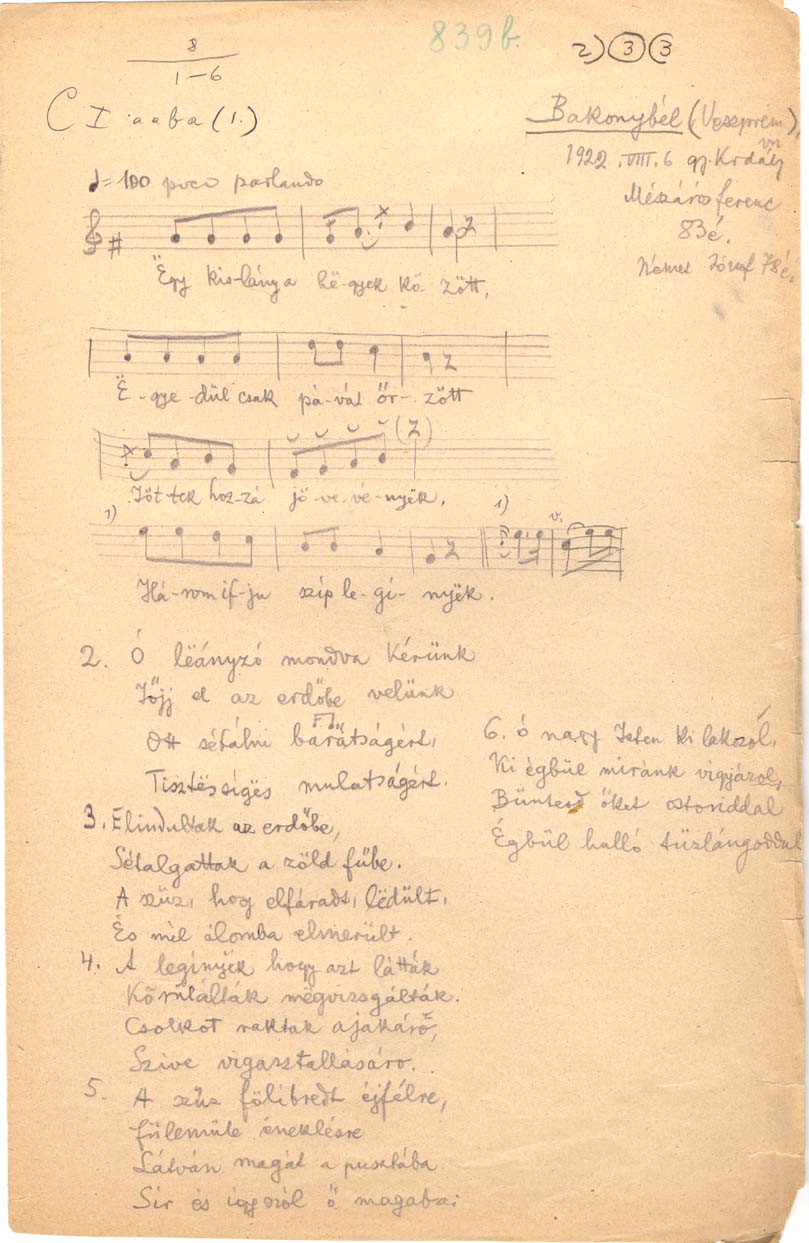 839b.
8
1-6
2) 3 3
C I aaba (1.)
Bakonybél (Veszprém),
1922. VIII. 6 gy. Király
Mészáros Ferenc
83é.
Német József 78é.
♩=100 poco parlando
Ëgy kis-lány a hë-gyek kö-zött,
Ë-gye-dül csak pá-vát őr-zött
(z)
Jöt-tek hoz-zá jö-ve-vé-nyëk,
1) 1) v.
Há-rom if-ju szíp le-gi-nyëk.
2. Ó lëányzó mondva kérünk
Jőjj el az erdőbe velünk
Ott sétálni barátságért,
Tisztëssígës mulatságért.
3. Elindultak az erdőbe,
Sétalgattak a zöld fűbe.
A szűz, hogy elfáradt, lëdült,
És mél álomba elmerült.
4. A legínyëk hogy azt látták
Körülálták mëgvizsgálták.
Csolkot raktak ajakárő,
Szive vigasztallásáro.
5. A szűz fölibredt éjfélre,
fülemüle éneklésre
Látván magát a pusztába
Sír és ígyszól ő magába:
6. Ó nagy Isten ki lakozol,
Ki égbül miránk vigyázol,
Büntesd őket ostoriddal
Égbül hulló tüzlángoddal